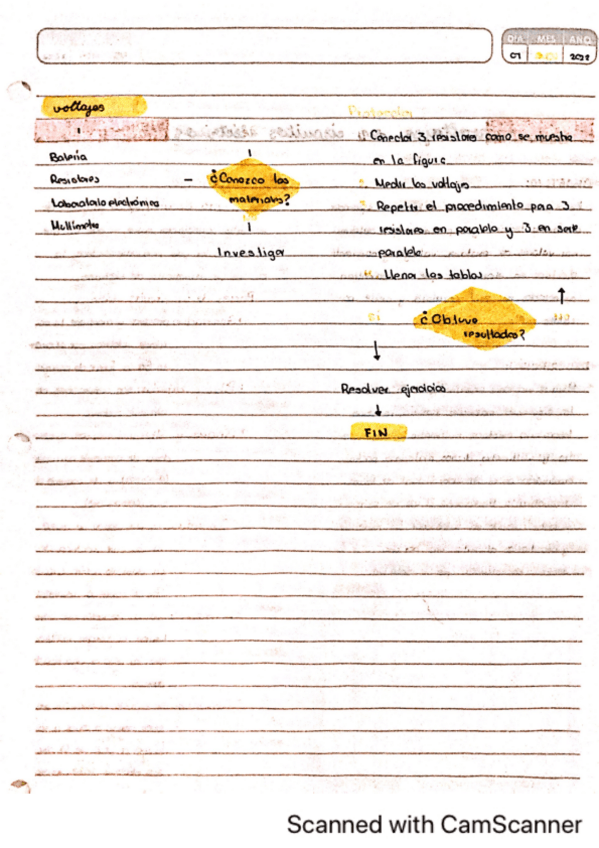 DÍA MES AÑO
01 2022
voltajes
Batería
Resistores
Laboratorio electrónico
Multímetro
¿Conozco los
materiales?
Investigar
Protocolo
1. Conectar 3 resistores como se muestra
en la figura
2. Medir los voltajes
3. Repetir el procedimiento para 3
resistores en paralelo y 3 en serie
paralelo
4. Llenar las tablas
¿Obtuvo
resultados?
Resolver ejercicios
FIN
Scanned with CamScanner